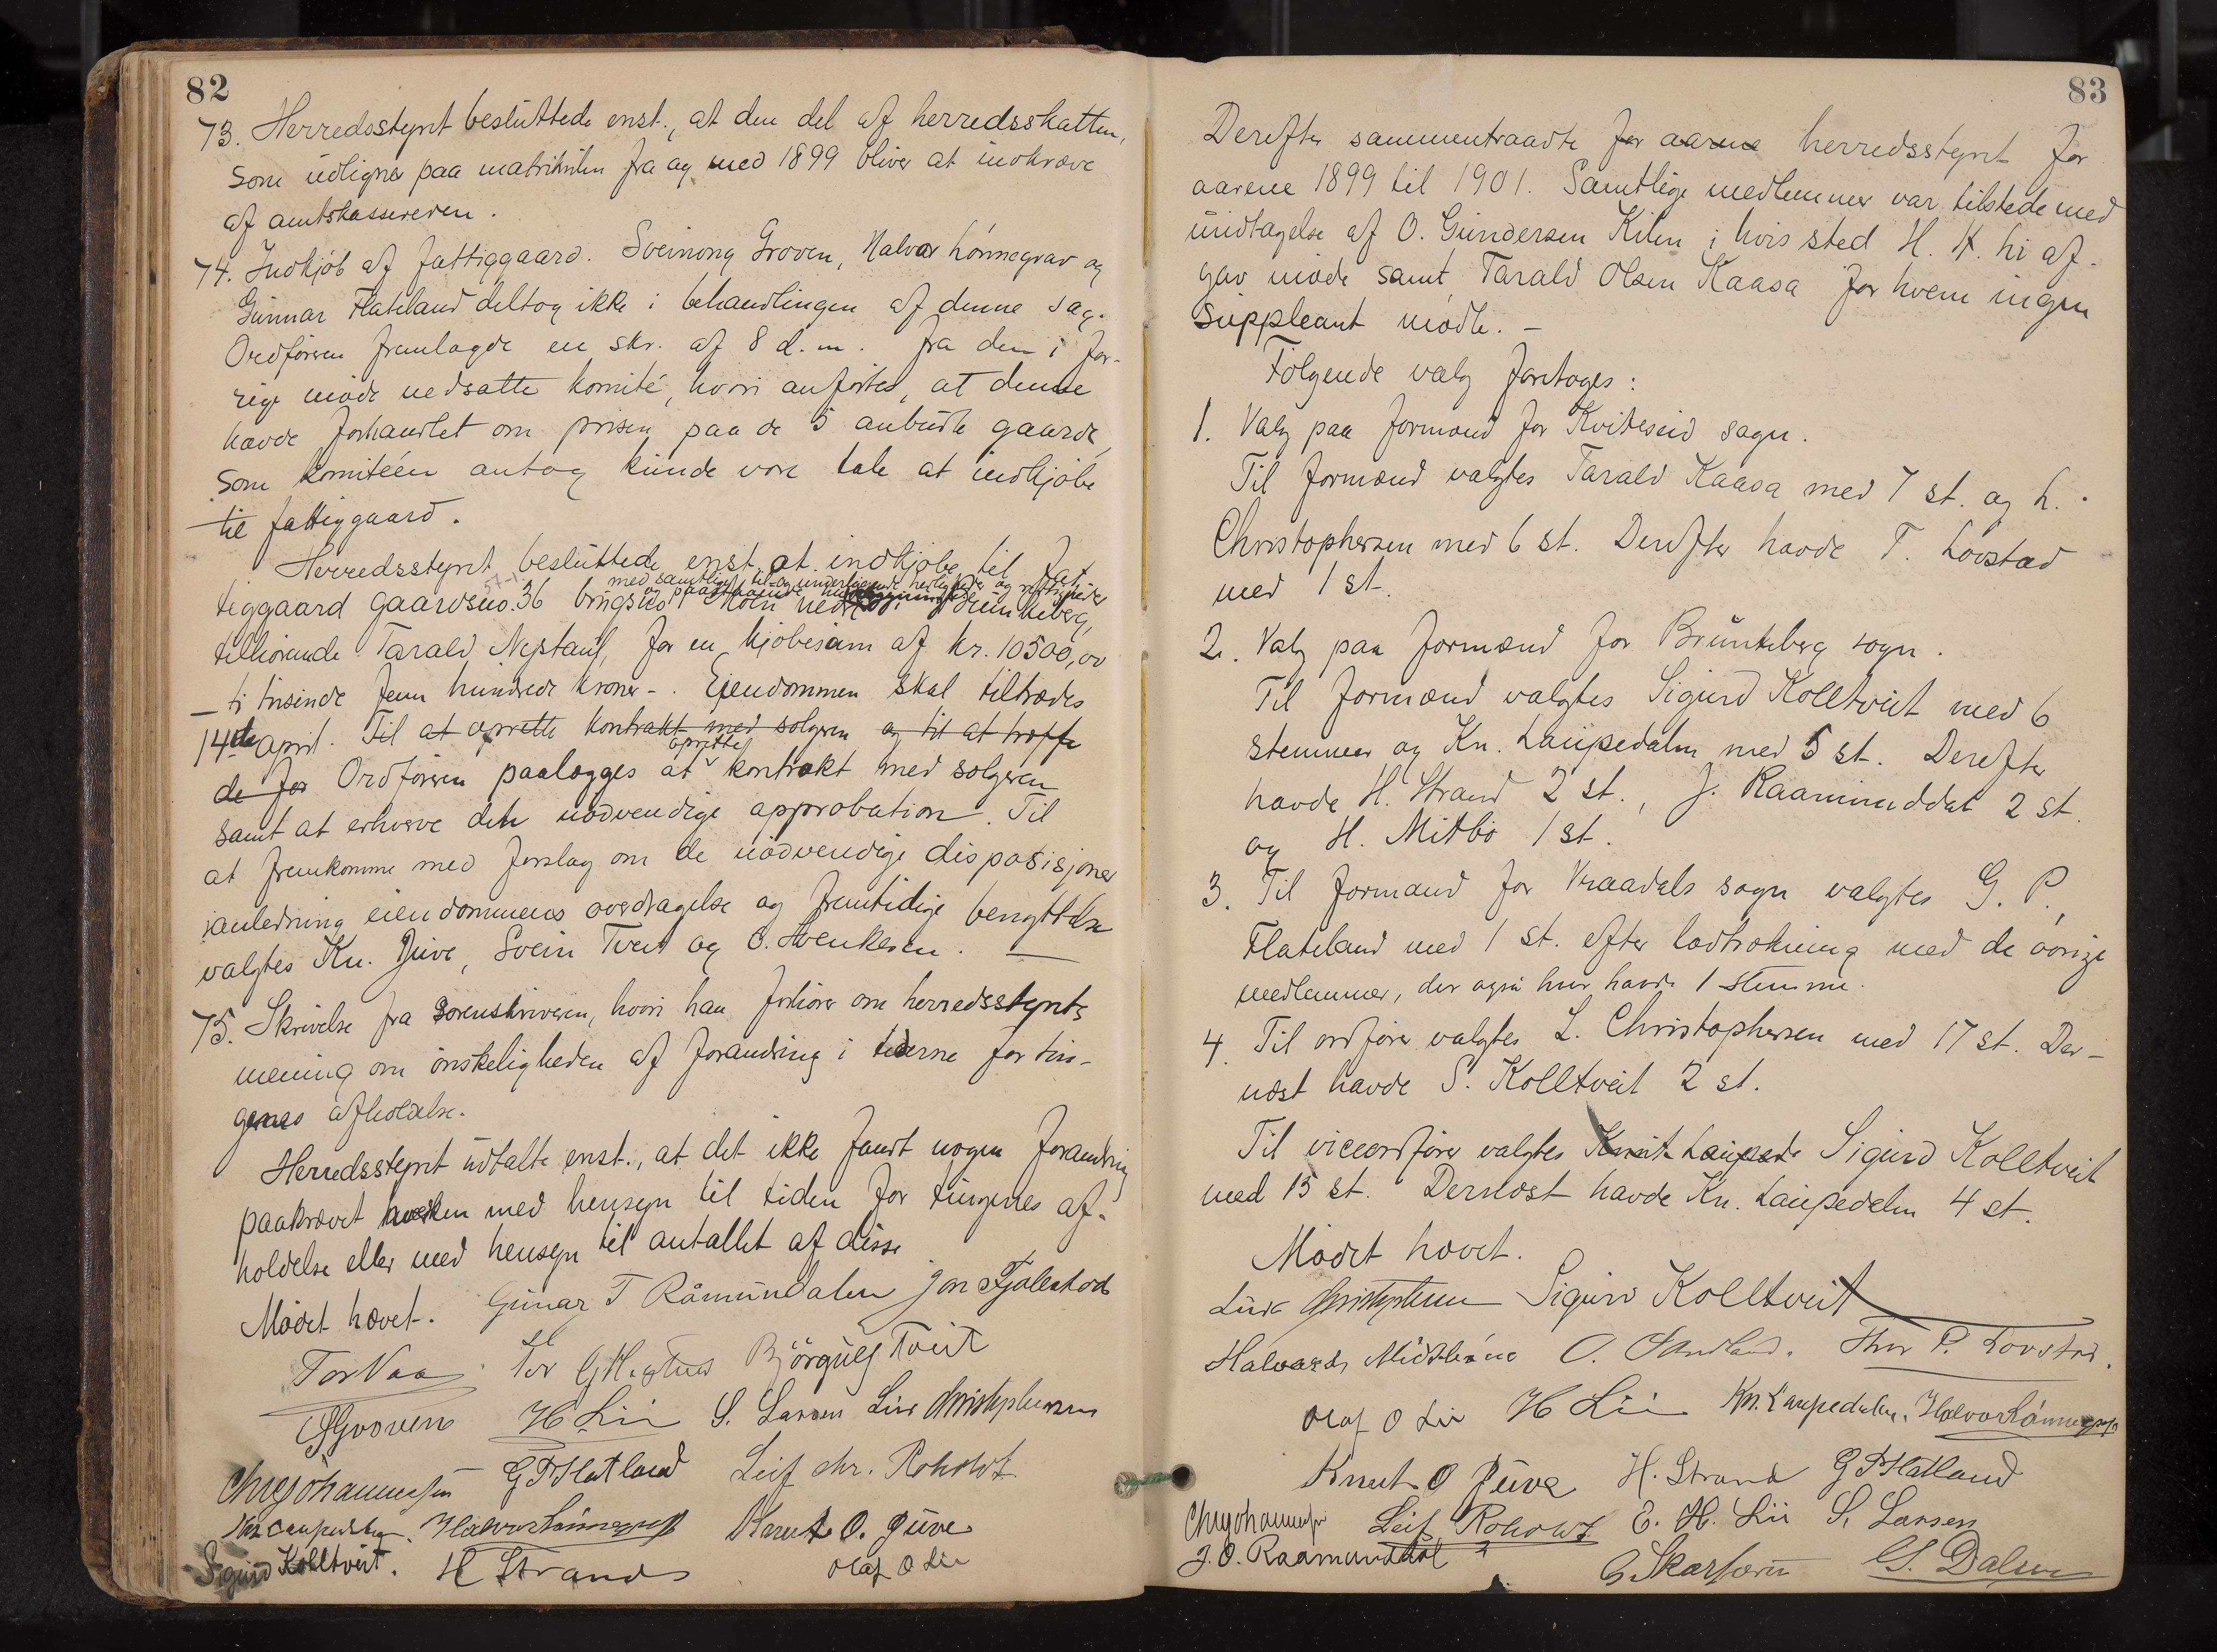 82
73. Herredsstyret besluttede enst., at den del af herredsskatten,
som udlignes paa matrikulen fra og med 1899 bliver at indkræve
af amtskassereren.
74. Indkjøb af fattiggaard. Sveinung Groven, Halvor Lønnegrav og
Gunnar Flateland deltog ikke i behandlingen af denne sag.
Ordføreren fremlagde en skr. af 8 d.m. fra den i for-
rige møde nedsatte komité, hvori anførtes, at denne
havde forhandlet om prisen paa de 5 anbudte gaarde,
som komitéen antog kunde være tale at indkjøbe
til fattiggaard.
Herredsstyret besluttede enst. at indkjøbe til fat-
med samtlige til- og underliggende herligheder og rettigheder
tiggaard gaardsno. 36 brugsno. 1 Moen nedre Brunkeberg,
tilhørende Tarald Nestaul, for en kjøbesum af kr. 10500,00
– ti tusinde fem hundrede kroner –. Eiendommen skal tiltrædes
14de april. Til at oprette kontrakt med sælgeren og til at træffe
de for Ordføreren paalægges at oprette kontrakt med sælgeren
samt at erhverve den nødvendige approbation. Til
at fremkomme med forslag om de nødvendige disposisjoner
i anledning eiendommens overdragelse og fremtidige benyttelse
valgtes Kn. Juve, Svein Tveit og O. Svenkesen. —
75. Skrivelse fra Sorenskriveren, hvori han forhører om herredsstyrets
mening om ønskeligheden af forandring i tiderne for tin-
genes afholdelse.
Herredsstyret udtalte enst., at det ikke fandt nogen forandring
paakrævet hverken med hensyn til tiden for tingenes af-
holdelse eller med hensyn til antallet af disse
Mødet hævet. Gunar T Råmundalen Jon Fjalestad
Tor Naa Tor G Hægtveit Bjørgulf Tveit
S Groven H Lii S. Larsen Liur Christophersen
Chr Johannessen G P Flatland Leif Chr. Roholdt
Kn Laupedalen Halvor Lønnegrav Knut O. Juve
Sigurd Kolltveit. H Strand Olaf O Lii
83
Derefter sammentraadte for aarene herredsstyret for
aarene 1899 til 1901. Samtlige medlemmer var tilstede med
undtagelse af O. Gundersen Kilen i hvis sted H. H. Li af-
gav møde samt Tarald Olsen Kaasa for hvem ingen
Suppleant mødte. –
Følgende valg foretoges:
1. Valg paa formænd for Kviteseid sogn.
Til formænd valgtes Tarald Kaasa med 7 st. og L.
Christophersen med 6 st. Derefter havde T. Lovstad
med 1 st.
2. Valg paa formænd for Brunkeberg sogn.
Til formænd valgtes Sigurd Kolltveit med 6
stemmer og Kn. Laupedalen med 5 st. Derefter
havde H. Strand 2 st., J. Raamunddal 2 st.
og H. Mitbø 1 st.
3. Til formand for Vraadals sogn valgtes G. P.
Flateland med 1 st. efter lodtrækning med de øvrige
medlemmer, der ogsaa hver havde 1 stemme.
4. Til ordfører valgtes L. Christophersen med 17 st. Der-
næst havde S. Kolltveit 2 st.
Til viceordfører valgtes Knut Laupeda Sigurd Kolltveit
med 15 st. Dernæst havde Kn. Laupedalen 4 st.
Mødet hævet.
Liur Christophersen Sigurd Kolltveit
Halvard Midtbøne O. Sundland. Thor P. Lovstad.
Olaf O Lii H Lii Kn. Laupedalen. Halvor Lønnegrav
Knut O Juve H. Strand G P Flatland
Chr Johannessen Leif Roholdt E. H. Lii S. Larsen
J. O. Raamunddal G. Skarprud G. Dalen